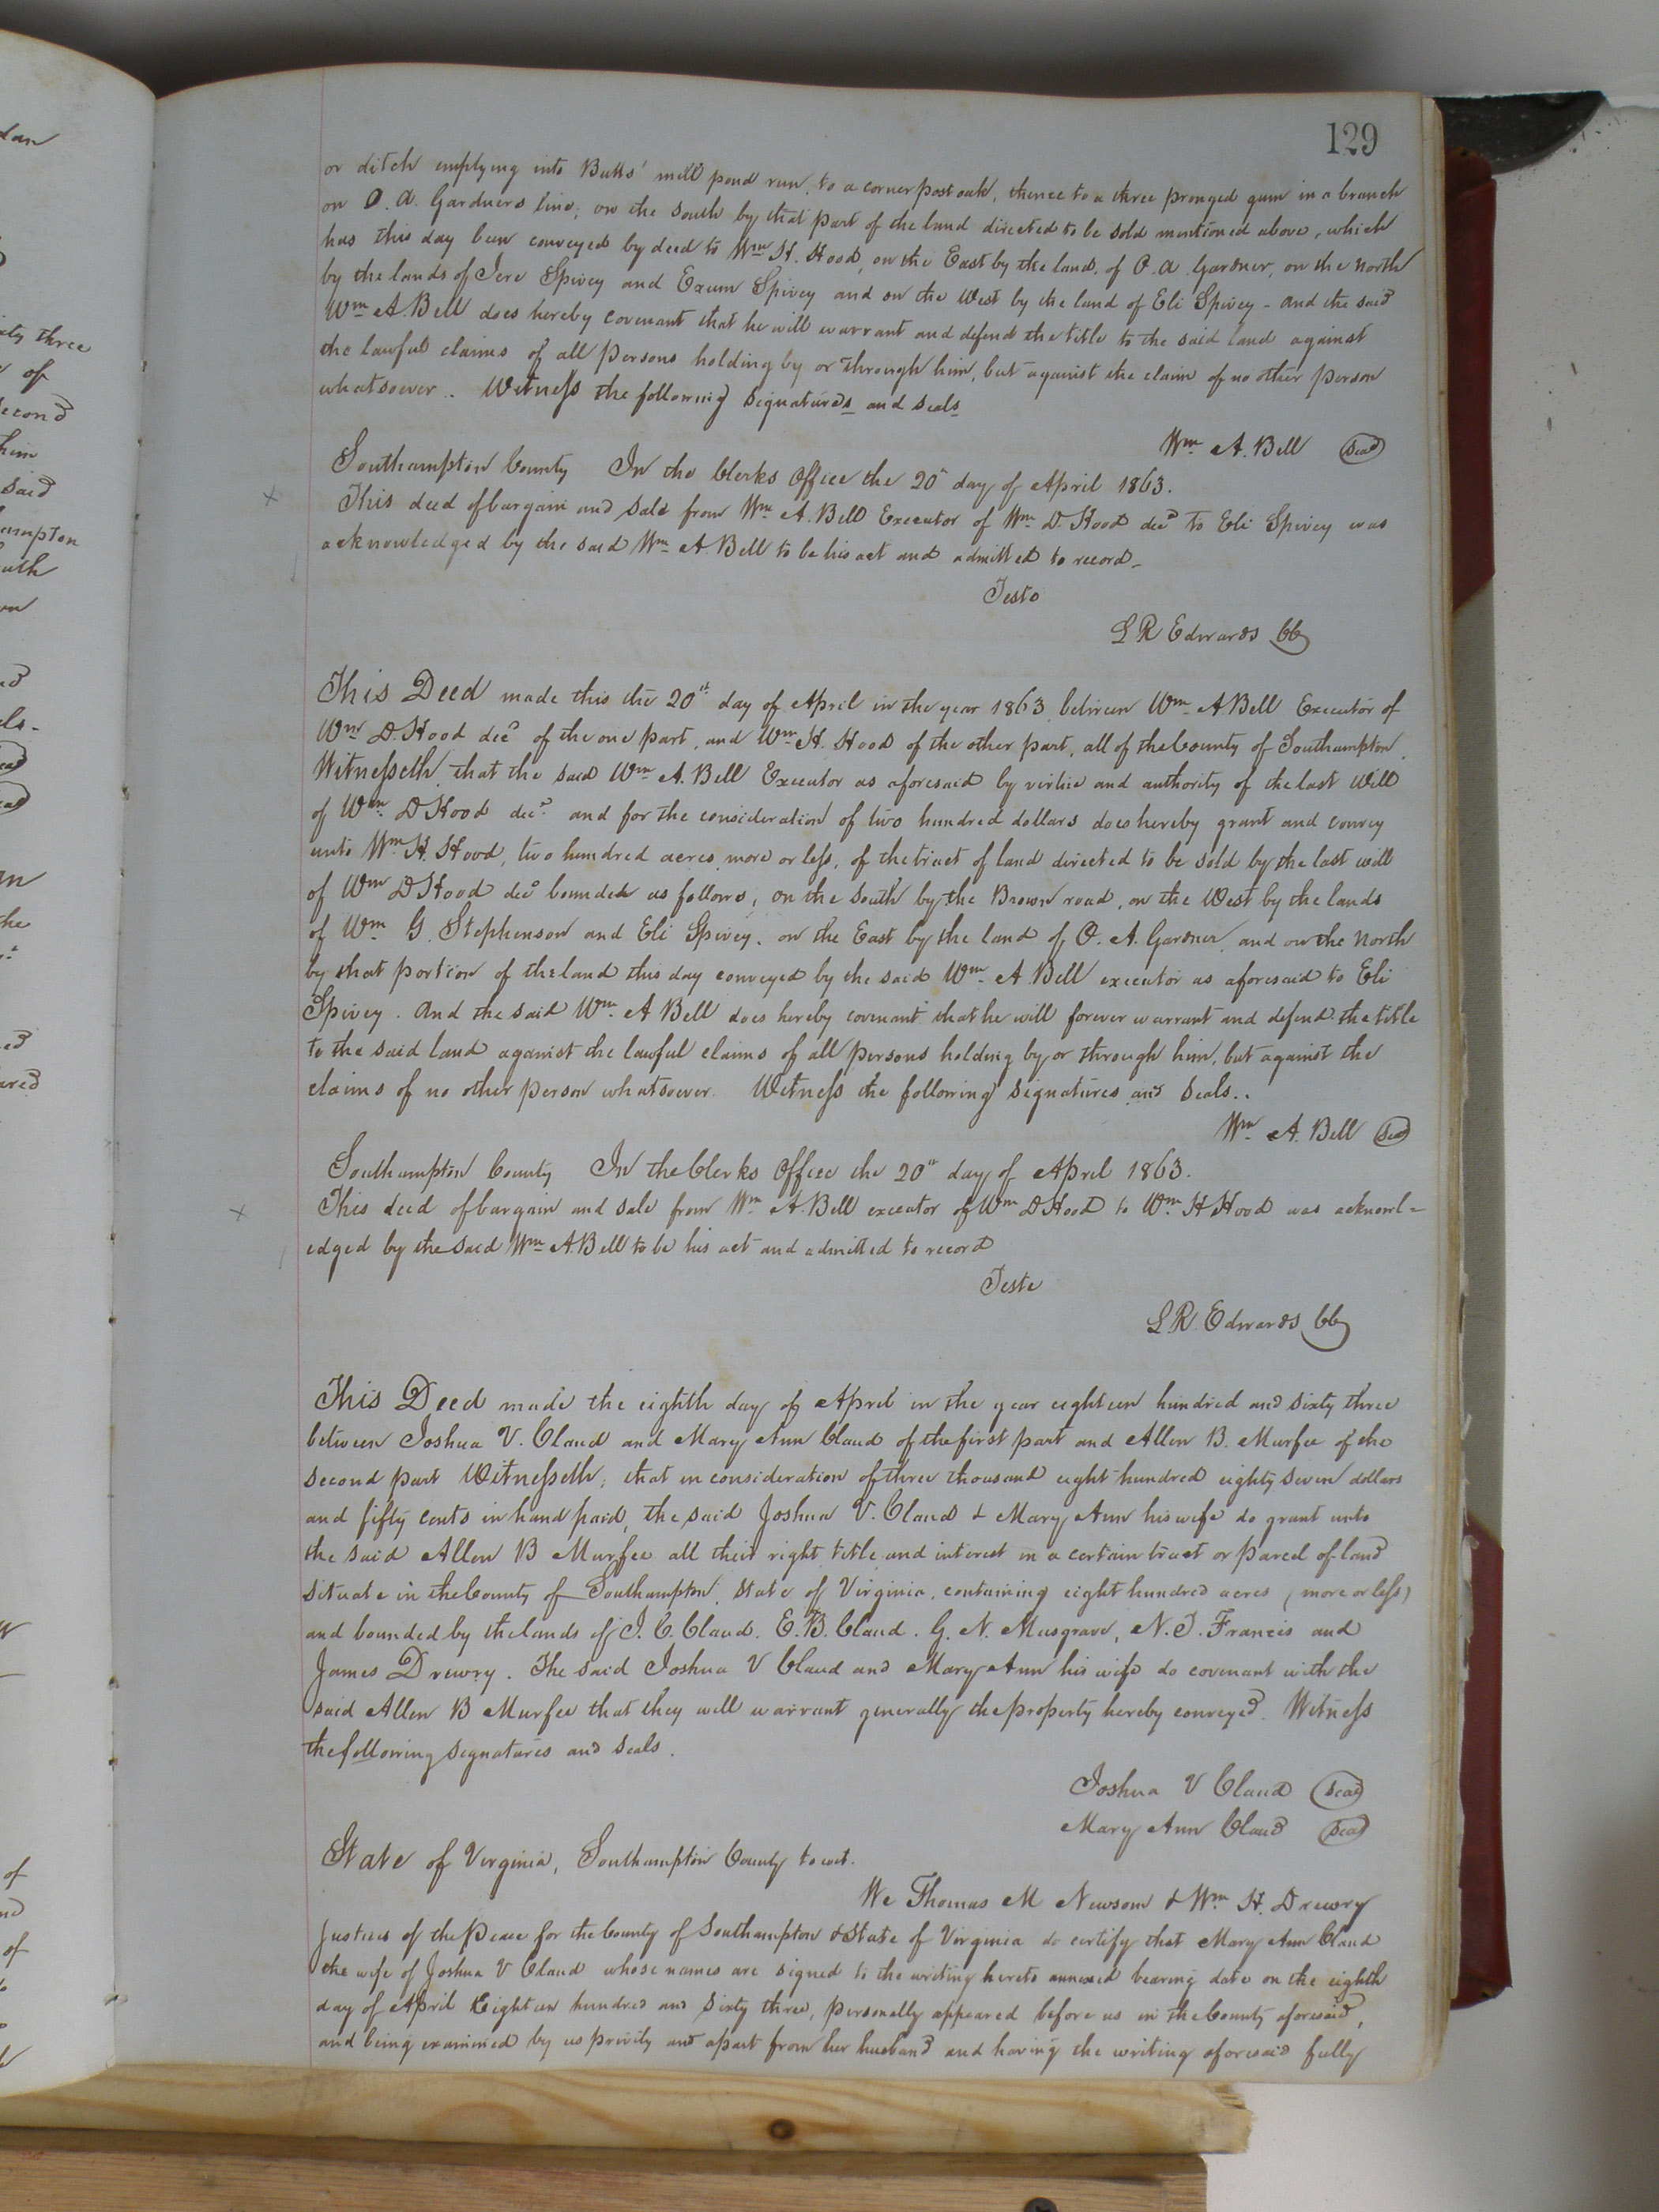 129
or ditch emptying into Butts' mill pond run, to a corner post oak, thence to a three pronged gum in a branch
on O. A. Gardners line, on the South by that part of the land directed to be sold mentioned above, which
has this day been conveyed by deed to Wm H. Hood, on the East by the land of O. A. Gardner, on the north
by the lands of Jere Spivey and Exum Spivey and on the West by the land of Eli Spivey - and the said
Wm A. Bell does hereby covenant that he will warrant and defend the title to the said land against
the lawful claims of all persons holding by or through him, but against the claim of no other person
whatsoever. Witness the following signatures and seals
Wm A. Bell Seal
Southampton County In the Clerks Office the 20th day of April 1863.
This deed of bargain and sale from Wm A. Bell Executor of Wm D. Hood decd to Eli Spivey was
acknowledged by the said Wm A. Bell to be his act and admitted to record -
Teste
L R Edwards CC
This Deed made this the 20th day of April in the year 1863 between Wm A. Bell Executor of
Wm D. Hood decd of the one part, and Wm H. Hood of the other part, all of the County of Southampton.
Witnesseth, that the said Wm A. Bell Executor as aforesaid by virtue and authority of the last Will
of Wm D Hood decd and for the consideration of two hundred dollars does hereby grant and convey
unto Wm H. Hood, two hundred acres more or less, of the tract of land directed to be sold by the last will
of Wm D Hood decd bounded as follows, on the South by the Brown road, on the West by the lands
of Wm G. Stephenson and Eli Spivey, on the East by the land of O. A. Gardner, and on the North
by that portion of the land this day conveyed by the said Wm A Bell executor as aforesaid to Eli
Spivey. And the said Wm A Bell does hereby covenant that he will forever warrant and defend the title
to the said land against the lawful claims of all persons holding by or through him, but against the
claims of no other person whatsoever. Witness the following signatures and seals.
Wm A. Bell Seal
Southampton County In the Clerks Office the 20th day of April 1863.
This deed of bargain and sale from Wm A. Bell executor of Wm D Hood to Wm H Hood was acknowl=
edged by the said Wm A. Bell to be his act and admitted to record
Teste
L R. Edwards CC
This Deed made the eighth day of April in the year eighteen hundred and sixty three
between Joshua V. Claud and Mary Ann Claud of the first part and Allen B. Murfee of the
second part Witnesseth; that in consideration of three thousand eight hundred eighty seven dollars
and fifty cents in hand paid, the said Joshua V. Claud & Mary Ann his wife do grant unto
the said Allen B Murfee all their right title and interest in a certain tract or parcel of land
situate in the County of Southampton, State of Virginia, containing eight hundred acres (more or less)
and bounded by the lands of J. C. Claud. E. B. Claud. G. N. Musgrave, N. T. Francis and
James Drewry. The said Joshua V Claud and Mary Ann his wife do covenant with the
said Allen B Murfee that they will warrant generally the property hereby conveyed. Witness
the following signatures and seals.
Joshua V Claud Seal
Mary Ann Claud Seal
State of Virginia, Southampton County to wit.
We Thomas M Newsom & Wm H. Drewry
Justices of the Peace for the County of Southampton & State of Virginia do certify that Mary Ann Claud
the wife of Joshua V Claud whose names are signed to the writing hereto annexed bearing date on the eighth
day of April Eighteen hundred and sixty three, personally appeared before us in the County aforesaid,
and being examined by us privily and apart from her husband and having the writing aforesaid fully